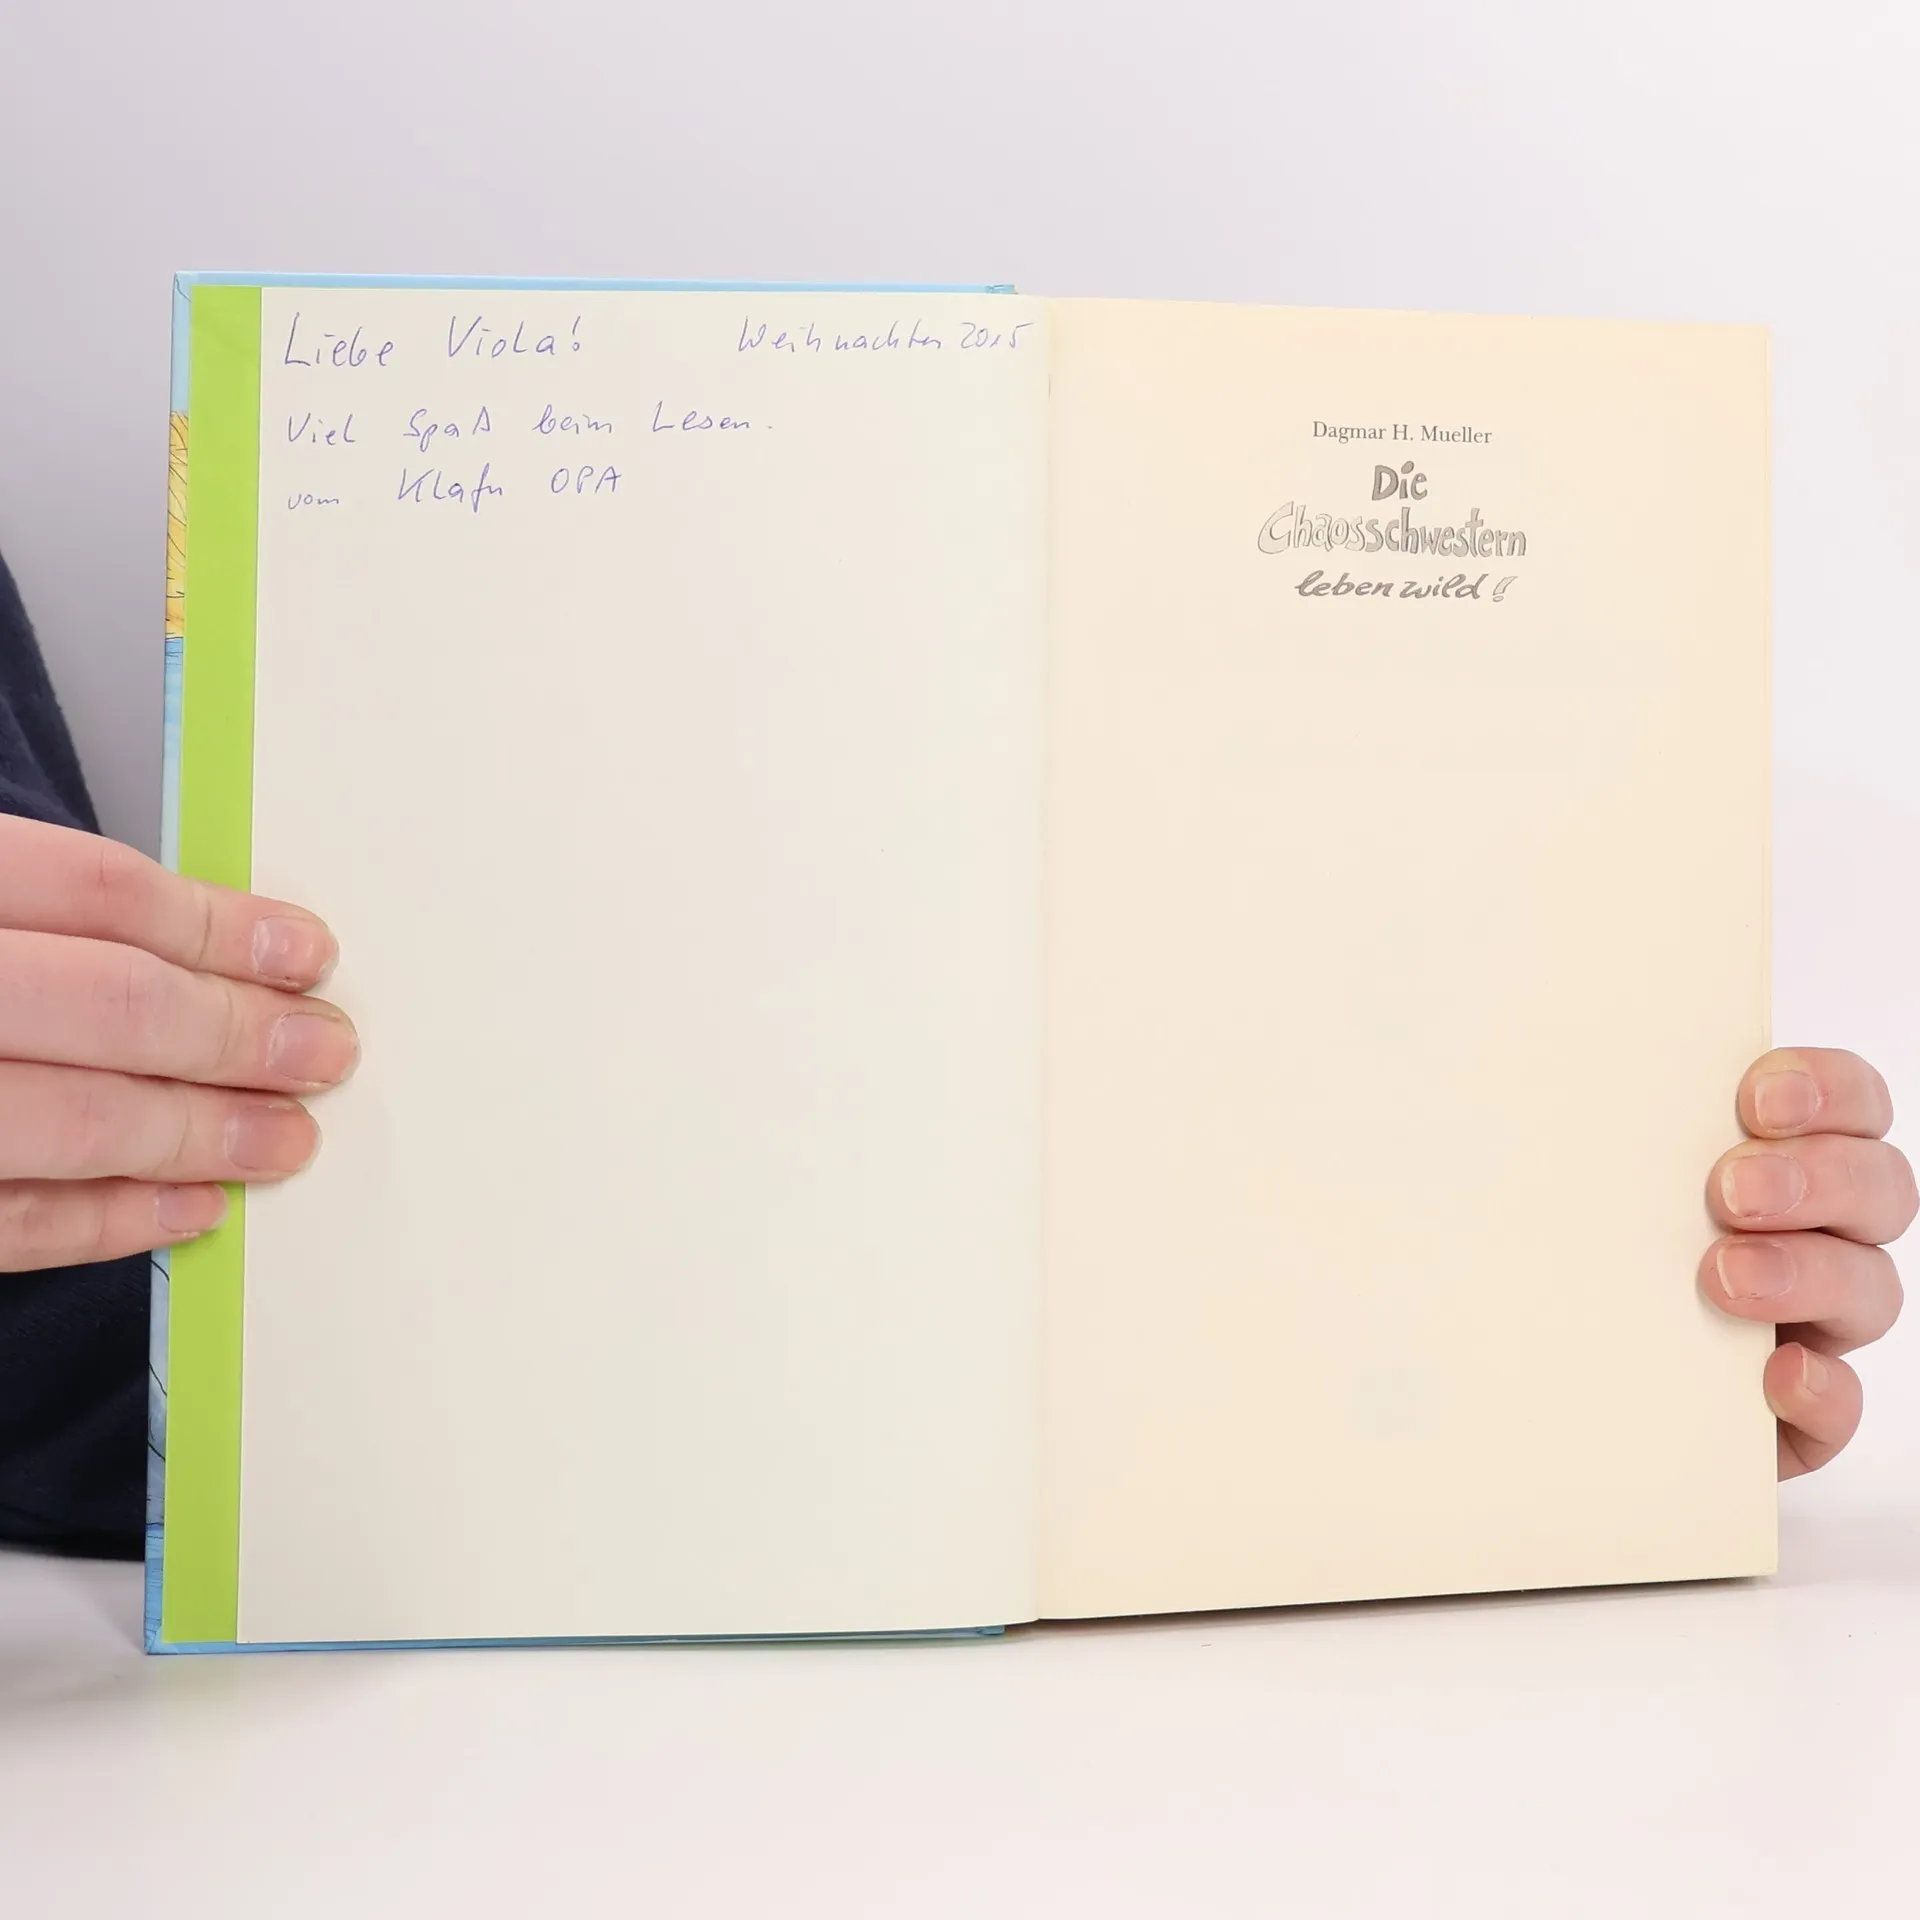 Liebe Viola! Weihnachten 2015
Viel Spaß beim Lesen.
vom Klafu OPA
Dagmar H. Mueller
Die
Chaosschwestern
leben wild!